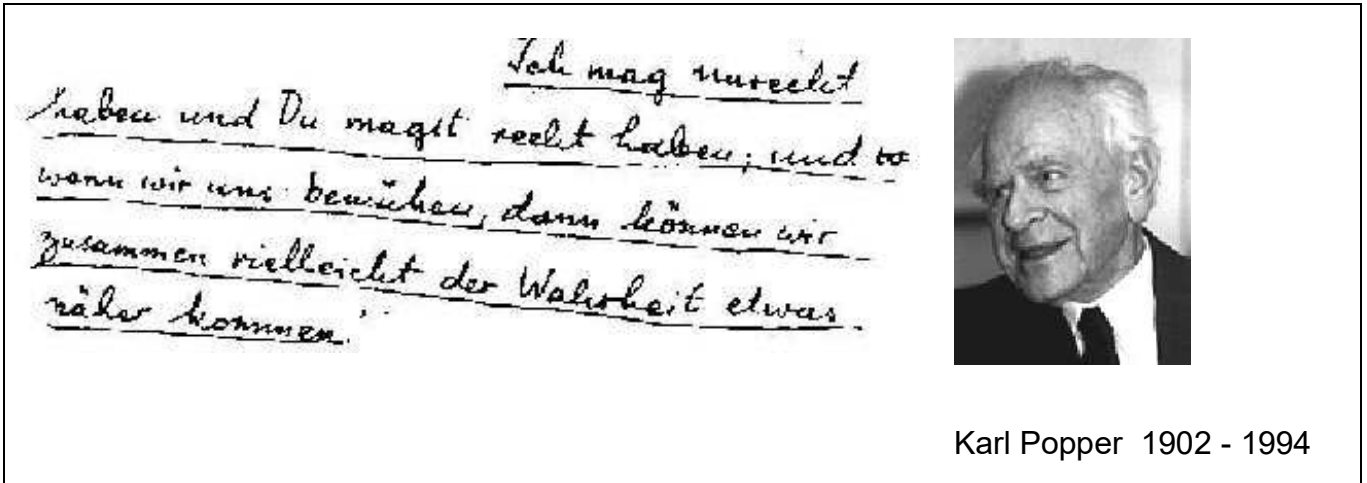 Ich mag unrecht
haben und Du magst recht haben; und
wenn wir uns bemühen, dann können wir
zusammen vielleicht der Wahrheit etwas
näher kommen.
Karl Popper 1902 - 1994